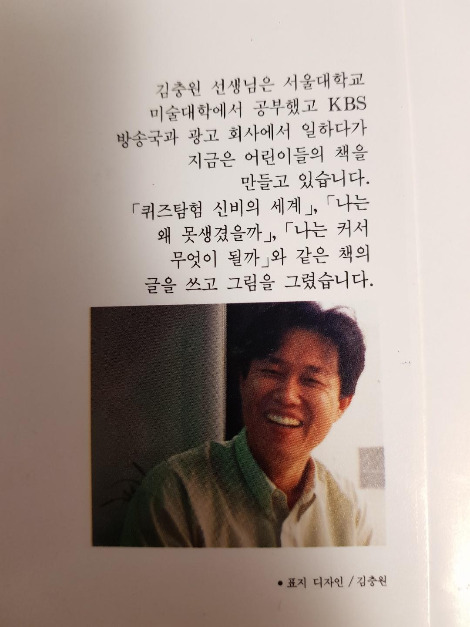 김충원 선생님은 서울대학교
미술대학에서 공부했고 KBS
방송국과 광고 회사에서 일하다가
지금은 어린이들의 책을
만들고 있습니다.
「퀴즈탐험 신비의 세계」, 「나는
왜 못생겼을까」, 「나는 커서
무엇이 될까」와 같은 책의
글을 쓰고 그림을 그렸습니다.
• 표지 디자인 / 김충원